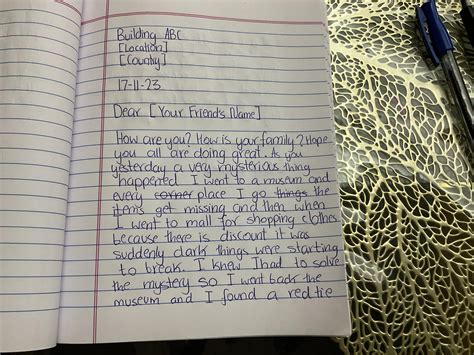 Building ABC
[Location]
[Country]
17-11-23
Dear [Your Friend's Name]
How are you? How is your family? Hope
you all are doing great. As you
yesterday a very mysterious thing
happened I went to a museum and
every corner place I go things the
items get missing and then when
I went to mall for shopping clothes
because there is discount it was
suddenly dark things were starting
to break. I knew I had to solve
the mystery so I went back the
museum and I found a red tie